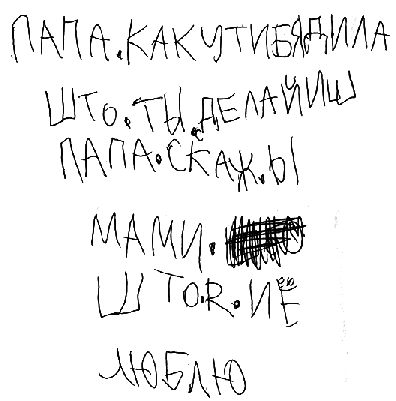 ПАПА.КАКУТИБЯДИЛА
ШТО.ТЫ.ДЕЛАЙИШ
ПАПА.СКАЖ.Ы
МАМИ.
ШТО.R.ИЁ
ЛЮБЛЮ